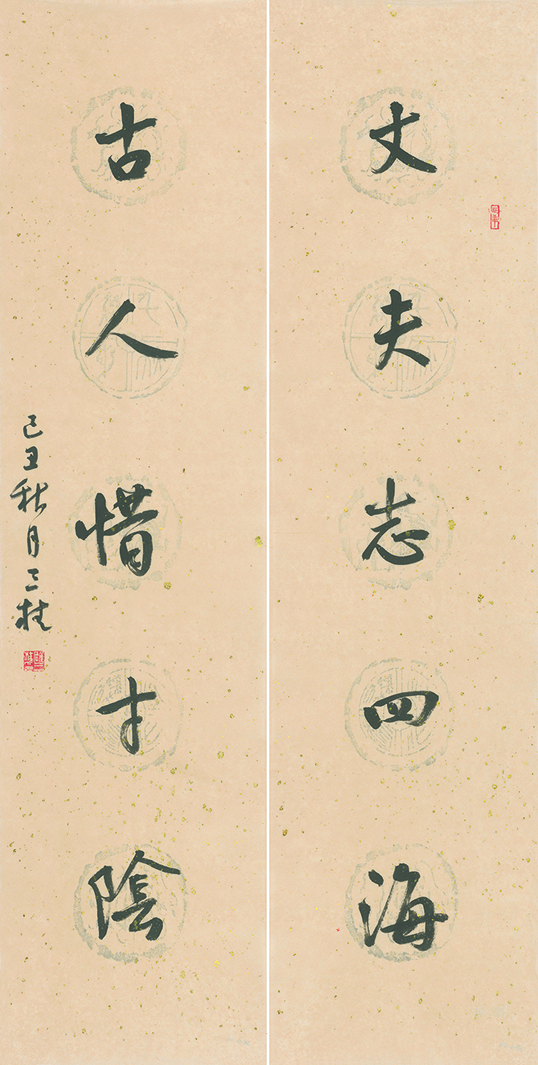 丈夫志四海
古人惜寸陰
己丑秋月三